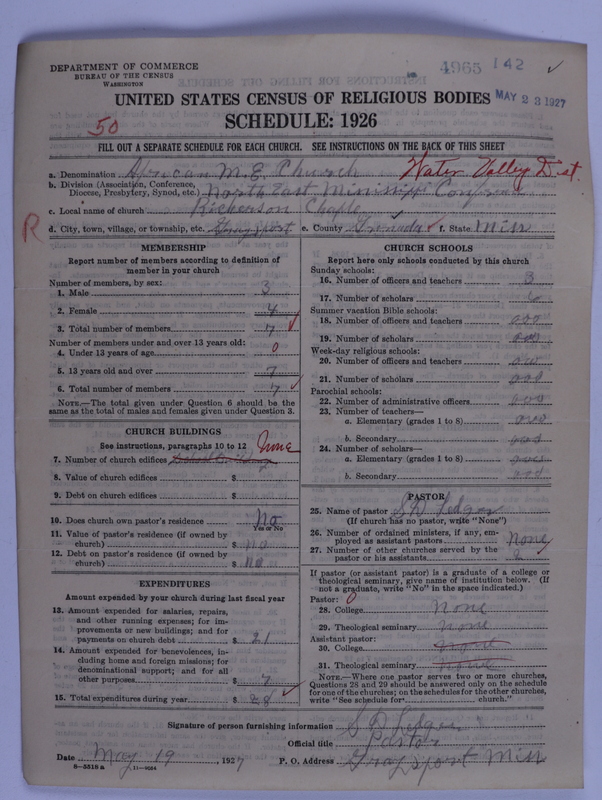 DEPARTMENT OF COMMERCE
BUREAU OF THE CENSUS
WASHINGTON
4965 142 ✓
UNITED STATES CENSUS OF RELIGIOUS BODIES MAY 23 1927
50 SCHEDULE: 1926
FILL OUT A SEPARATE SCHEDULE FOR EACH CHURCH. SEE INSTRUCTIONS ON THE BACK OF THIS SHEET
a. Denomination African M.E. Church Water Valley Dist.
b. Division (Association, Conference,
Diocese, Presbytery, Synod, etc.) North East
c. Local name of church Rickerson Chaple
R d. City, town, village, or township, etc. Graysport e. County Grenada f. State Miss
MEMBERSHIP
Report number of members according to definition of
member in your church
Number of members, by sex:
1. Male 3
2. Female 4
3. Total number of members 7 ✓
Number of members under and over 13 years old:
4. Under 13 years of age 0
5. 13 years old and over 7
6. Total number of members 7 ✓
NOTE.—The total given under Question 6 should be the
same as the total of males and females given under Question 3.
CHURCH BUILDINGS
See instructions, paragraphs 10 to 12 None
7. Number of church edifices
8. Value of church edifices $
9. Debt on church edifices $
10. Does church own pastor's residence No
Yes or No
11. Value of pastor's residence (if owned by
church) $ No
12. Debt on pastor's residence (if owned by
church) $ No
EXPENDITURES
Amount expended by your church during last fiscal year
13. Amount expended for salaries, repairs,
and other running expenses; for im-
provements or new buildings; and for
payments on church debt $ 21
14. Amount expended for benevolences, in-
cluding home and foreign missions; for
denominational support; and for all
other purposes $ 7
15. Total expenditures during year $ 28 ✓
CHURCH SCHOOLS
Report here only schools conducted by this church
Sunday schools:
16. Number of officers and teachers 3
17. Number of scholars
Summer vacation Bible schools:
18. Number of officers and teachers
19. Number of scholars
Week-day religious schools:
20. Number of officers and teachers
21. Number of scholars
Parochial schools:
22. Number of administrative officers
23. Number of teachers—
a. Elementary (grades 1 to 8)
b. Secondary
24. Number of scholars—
a. Elementary (grades 1 to 8)
b. Secondary
PASTOR
25. Name of pastor S D Ledger
(If church has no pastor, write "None")
26. Number of ordained ministers, if any, em-
ployed as assistant pastors None
27. Number of other churches served by the
pastor or his assistants 2
If pastor (or assistant pastor) is a graduate of a college or
theological seminary, give name of institution below. (If
not a graduate, write "No" in the space indicated.)
Pastor: 0
28. College None
29. Theological seminary None
Assistant pastor:
30. College None
31. Theological seminary None
NOTE.—Where one pastor serves two or more churches,
Questions 28 and 29 should be answered only on the schedule
for one of the churches; on the schedules for the other churches,
write "See schedule for church."
Signature of person furnishing information S D Ledger
Official title Pastor
Date May 19, 1927 P. O. Address Graysport Miss
8—5518 a 11—9684